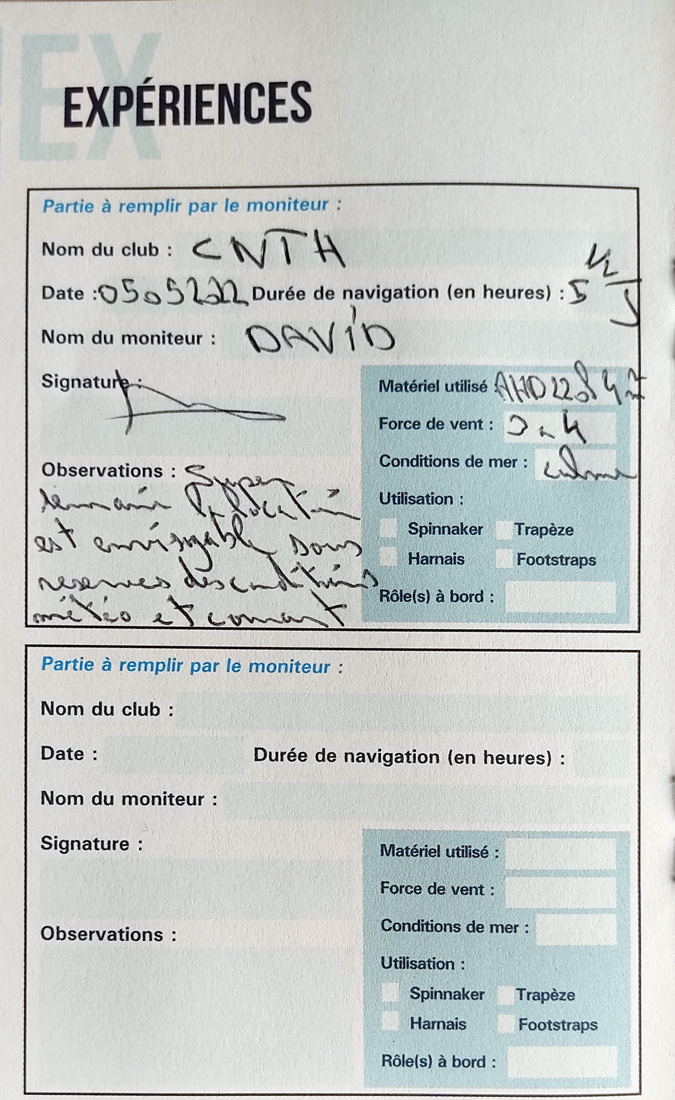 EX
EXPÉRIENCES
Partie à remplir par le moniteur :
Nom du club : CNTH
Date : 05052022 Durée de navigation (en heures) : 5 1/2 J
Nom du moniteur : DAVID
Signature :
Matériel utilisé
Force de vent : 3 à 4
Conditions de mer : calme
Utilisation :
Spinnaker Trapèze
Harnais Footstraps
Rôle(s) à bord :
Observations : Super
semaine la location
est envisageable sous
reserves des conditions
météo et courant
Partie à remplir par le moniteur :
Nom du club :
Date : Durée de navigation (en heures) :
Nom du moniteur :
Signature :
Matériel utilisé :
Force de vent :
Conditions de mer :
Utilisation :
Spinnaker Trapèze
Harnais Footstraps
Rôle(s) à bord :
Observations :